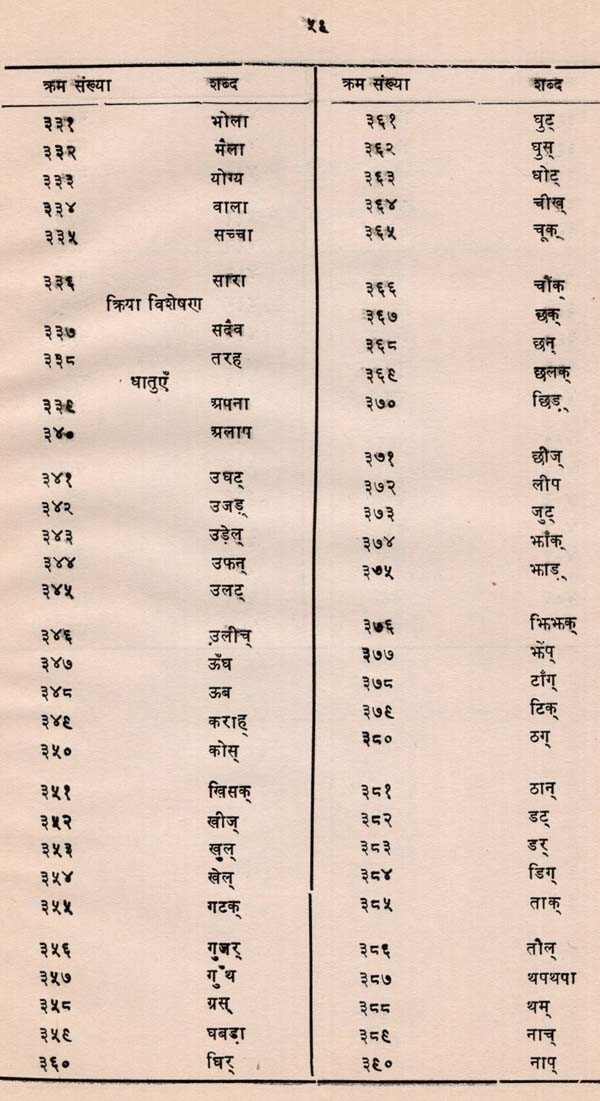 ५६
क्रम संख्या शब्द
३३१ भोला
३३२ मैला
३३३ योग्य
३३४ वाला
३३५ सच्चा
३३६ सारा
क्रिया विशेषण
३३७ सदैव
३३८ तरह
धातुएँ
३३९ अपना
३४० अलाप
३४१ उघट्
३४२ उजड़्
३४३ उड़ेल्
३४४ उफन्
३४५ उलट्
३४६ उलीच्
३४७ ऊँघ
३४८ ऊब
३४९ कराह्
३५० कोस्
३५१ खिसक्
३५२ खीज्
३५३ खुल्
३५४ खेल्
३५५ गटक्
३५६ गुजर्
३५७ गुँथ
३५८ ग्रस्
३५९ घबड़ा
३६० घिर्
क्रम संख्या शब्द
३६१ घुट्
३६२ घुस्
३६३ घोट्
३६४ चीख्
३६५ चूक्
३६६ चौंक्
३६७ छक्
३६८ छन्
३६९ छलक्
३७० छिड़्
३७१ छीज्
३७२ लीप
३७३ जुट्
३७४ झाँक्
३७५ झाड़्
३७६ झिझक्
३७७ झेंप्
३७८ टाँग्
३७९ टिक्
३८० ठग्
३८१ ठान्
३८२ डट्
३८३ डर्
३८४ डिग्
३८५ ताक्
३८६ तौल्
३८७ थपथपा
३८८ थम्
३८९ नाच्
३९० नाप्